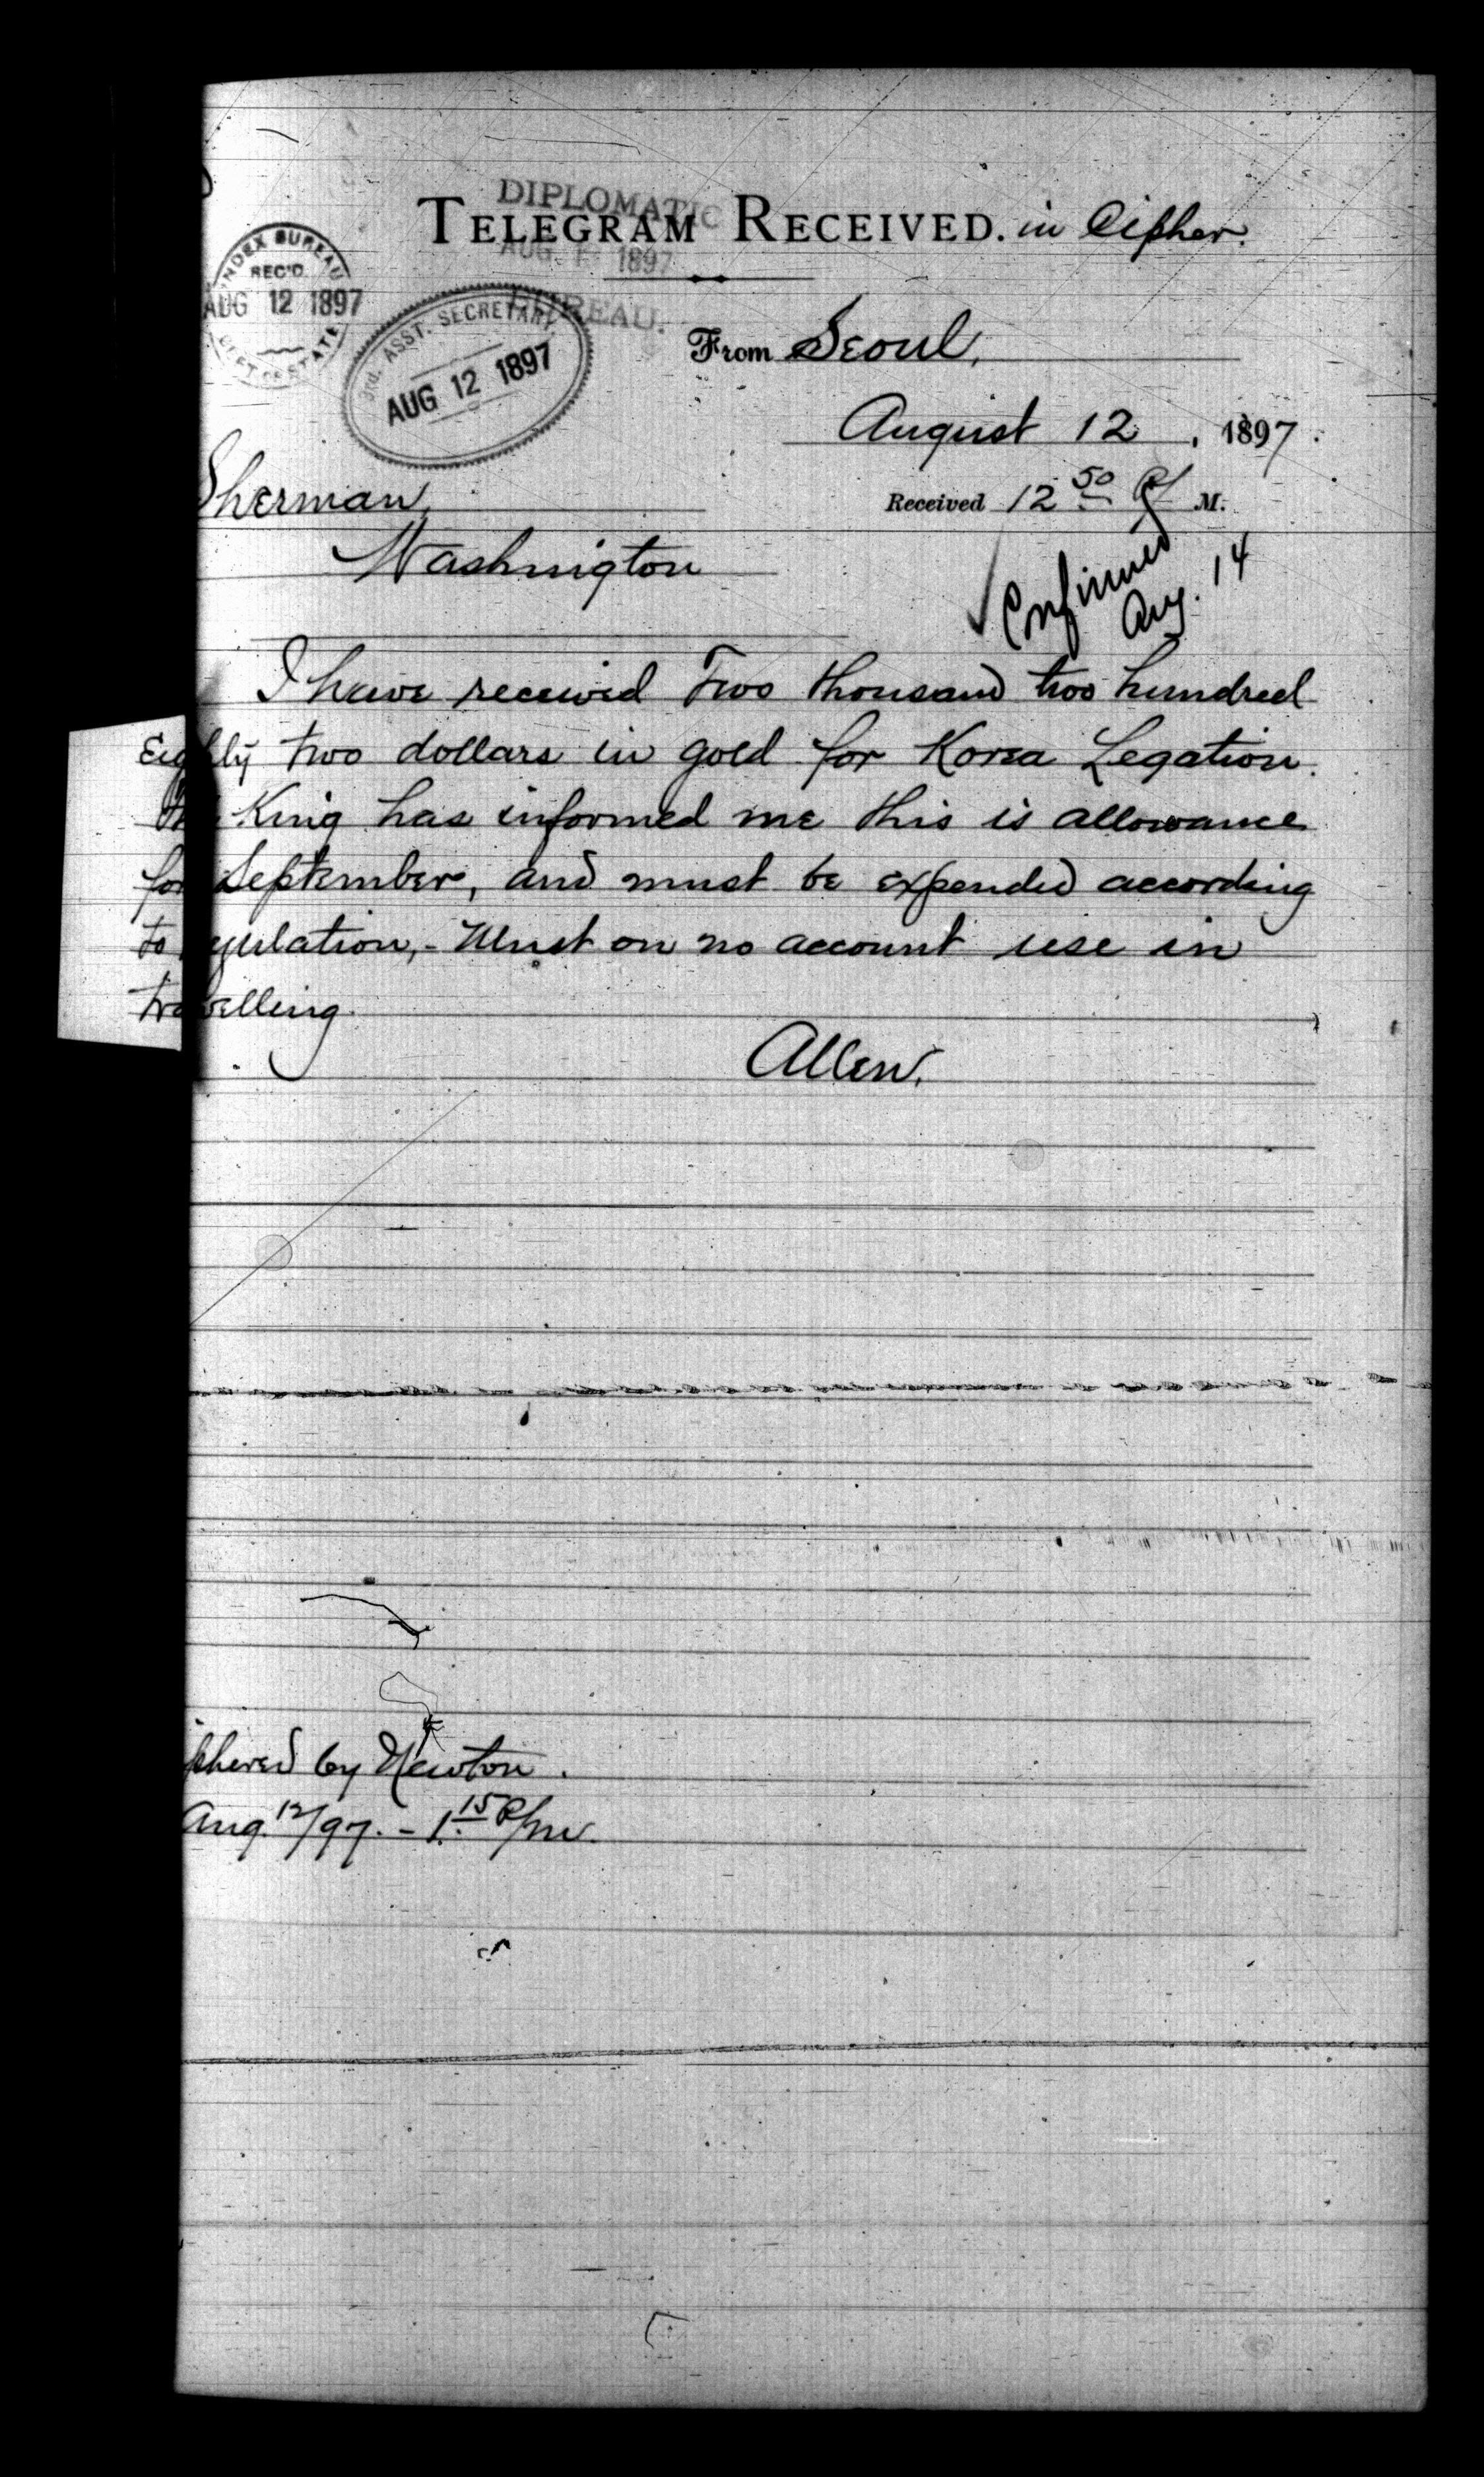 DIPLOMATIC
TELEGRAM RECEIVED. in Cipher.
AUG 1897
BUREAU.
INDEX BUREAU
REC'D
AUG 12 1897
DEPT OF STATE
3rd. ASST. SECRETARY
AUG 12 1897
From Seoul,
August 12, 1897.
Sherman,
Received 12 50 P M.
Washington
Confirmed
Aug. 14
I have received Two thousand two hundred
Eighty two dollars in gold for Korea Legation.
the King has informed me this is allowance
for September, and must be expended according
to regulation,- Must on no account use in
travelling.
Allen.
phered by Newton.
Aug. 12/97. - 1.15 P/m.